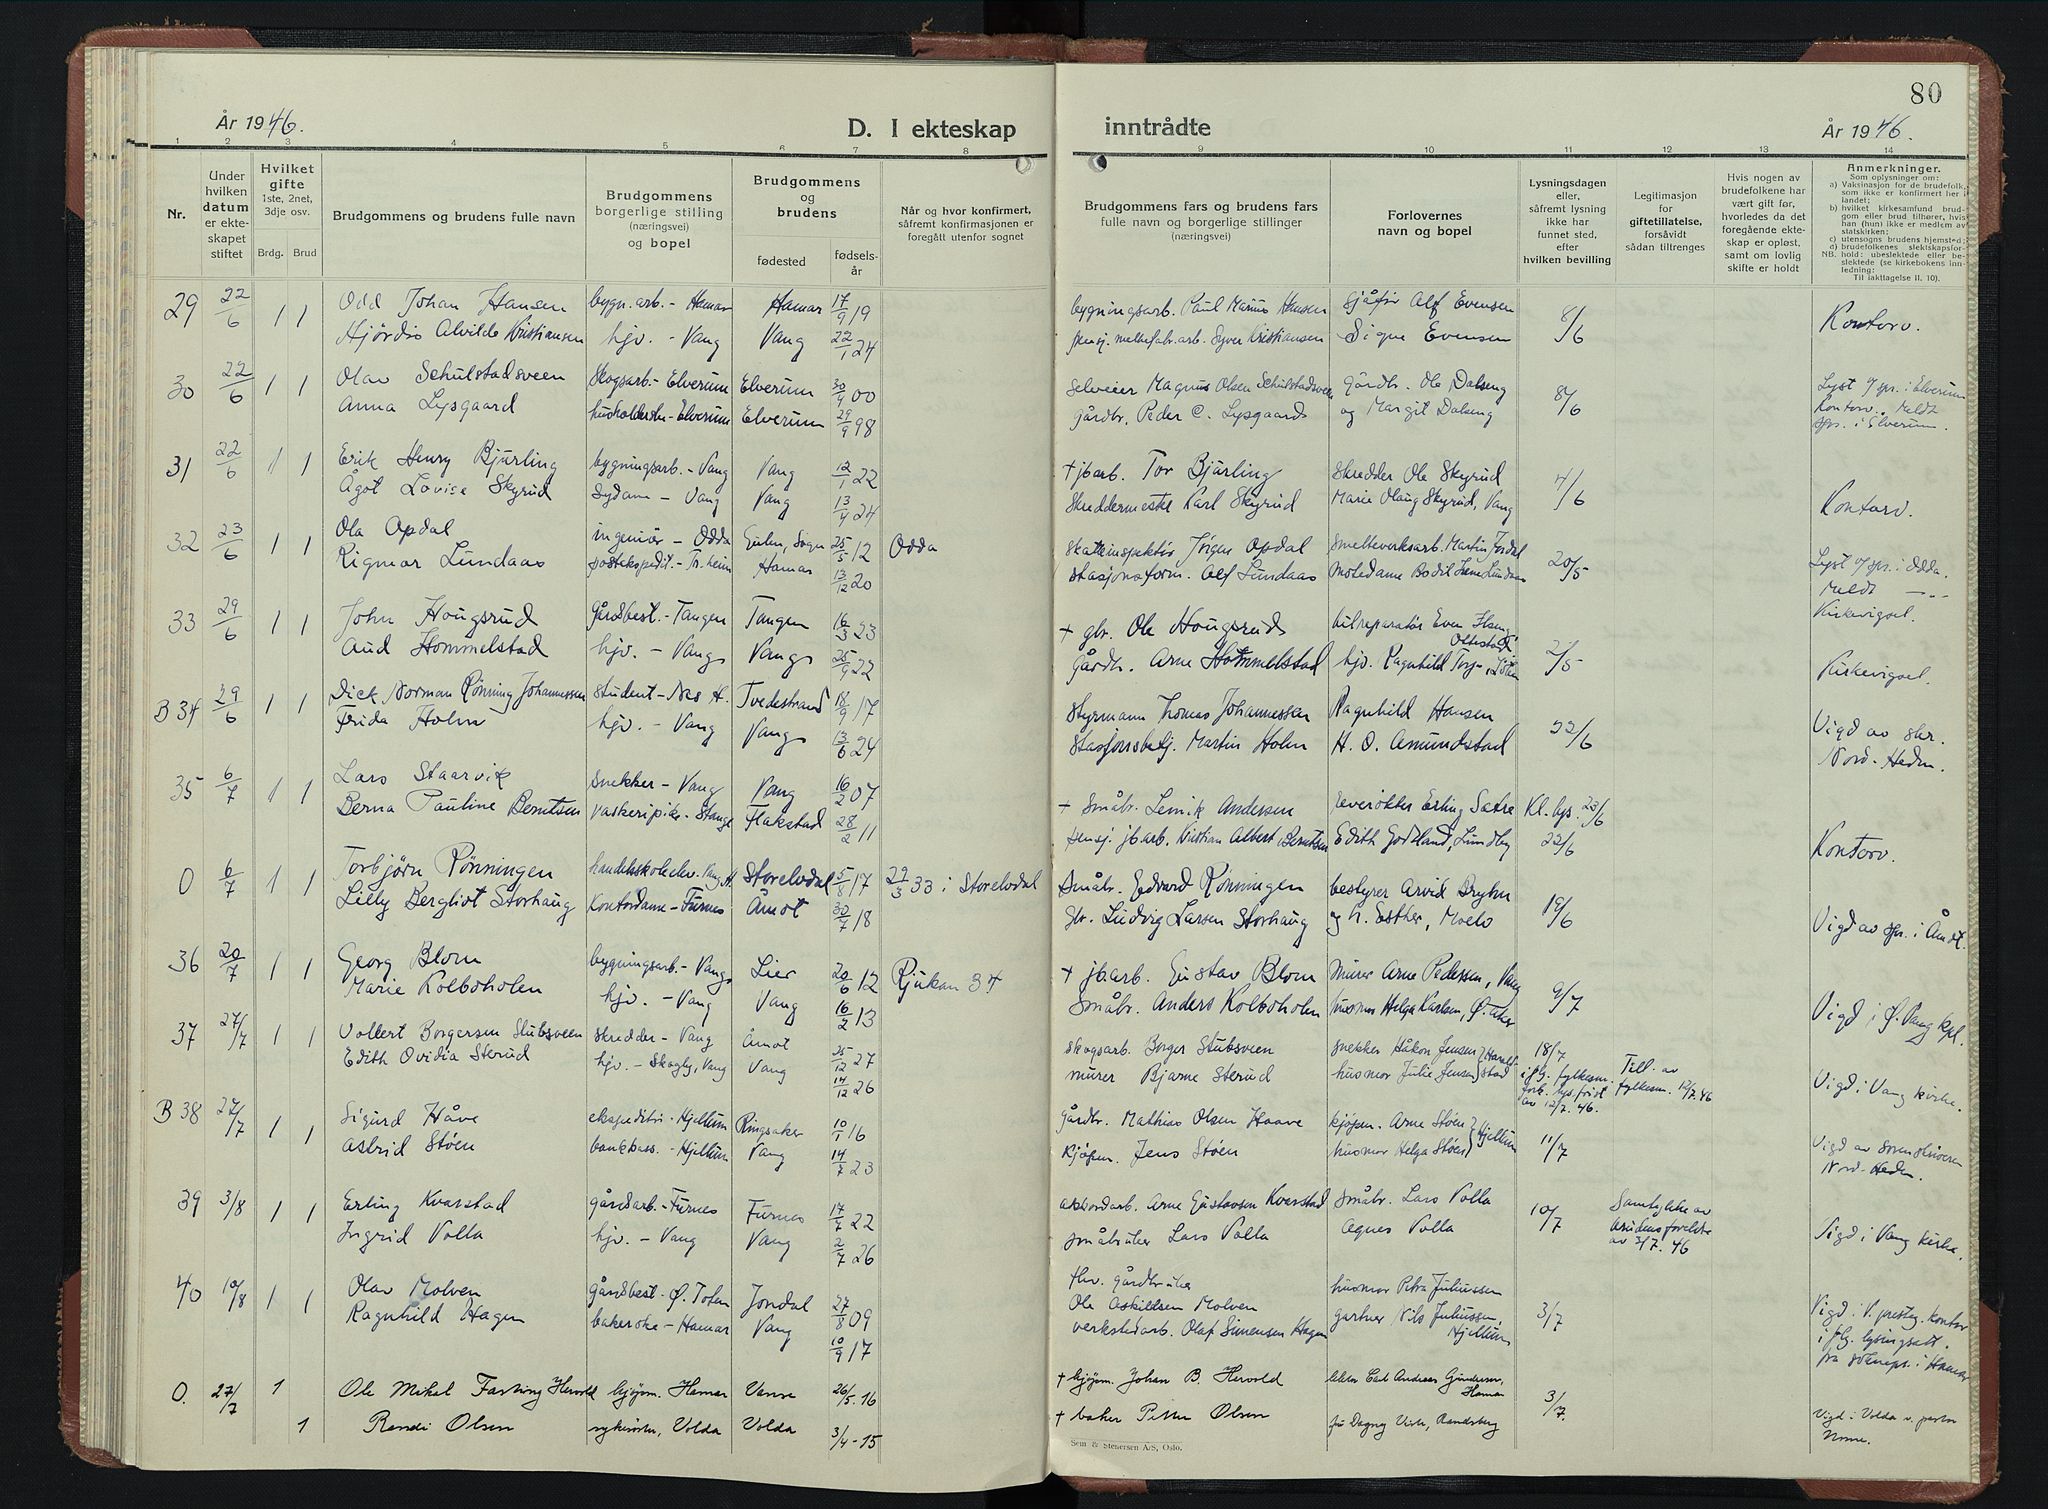 80
År 1946.
D. I ekteskap
inntrådte
År 1946.
1 2 3 4 5 6 7 8
9 10 11 12 13 14
Nr.
Under hvilken datum er ekteskapet stiftet
Hvilket gifte 1ste, 2net, 3dje osv.
Brdg. Brud
Brudgommens og brudens fulle navn
Brudgommens borgerlige stilling (næringsvei) og bopel
Brudgommens og brudens
fødested
fødselsår
Når og hvor konfirmert, såfremt konfirmasjonen er foregått utenfor sognet
Brudgommens fars og brudens fars fulle navn og borgerlige stillinger (næringsvei)
Forlovernes navn og bopel
Lysningsdagen eller, såfremt lysning ikke har funnet sted, efter hvilken bevilling
Legitimasjon for giftetillatelse, forsåvidt sådan tiltrenges
Hvis nogen av brudefolkene har vært gift før, hvorledes da det foregående ekteskap er opløst, samt om lovlig skifte er holdt
Anmerkninger.
Som oplysninger om:
a) Vaksinasjon for de brudefolk, som ikke er konfirmert her i landet;
b) hvilket kirkesamfund brudgom eller brud tilhører, hvis han (hun) ikke er medlem av statskirken;
c) utensogns brudens hjemsted;
d) brudefolkenes slektskapsforhold: ubeslektede eller beslektede (se kirkebokens innledning:
NB.
Til iakttagelse II. 10).
29 22/6 1 1 Odd Johan Hansen bygn.arb. - Hamar Hamar 17/9 19 bygningsarb. Paul Marius Hansen sjåfør Alf Evensen 8/6 Kontorv.
Hjørdis Alvilde Kristiansen hjv. - Vang Vang 22/1 24 pensj. melkefabr.arb. Syver Kristiansen Signe Evensen
30 22/6 1 1 Olav Schulstadsveen Skogsarb. - Elverum Elverum 30/9 00 selveier Magnus Olsen Schulstadsveen gårdbr. Ole Dalseng 8/6 Lyst o/spr. i Elverum
Anna Lysgaard husholderske - Elverum Elverum 29/9 98 gårdbr. Peder C. Lysgaard og Margit Dalseng Kontorv. Meldt spr. i Elverum.
31 22/6 1 1 Erik Henry Bjurling bygningsarb. - Vang Vang 12/1 22 + jbarb. Tor Bjurling skredder Ole Skyrud 4/6 Kontorv.
Ågot Lovise Skyrud Sydame - Vang Vang 13/4 24 Skreddermester Karl Skyrud Marie Olaug Skyrud, Vang
32 23/6 1 1 Ola Opdal ingeniør - Odda Gulen, Sogn 25/5 12 Odda skatteinspektør Jørgen Opdal smelteverksarb. Martin Jordal 20/5 Lyst o/spr. i Odda.
Rigmor Lundaas postekspedit. - Tr.heim Hamar 13/12 20 stasjonsform. Alf Lundaas motedame Bodil Irene Lundaas Meldt —"—
Kirkevigsel.
33 29/6 1 1 John Hougsrud gårdbest. - Tangen Tangen 16/3 23 + gbr. Ole Hougsrud bilreparatør Even Ilseng, Ottestad 2/5 Kirkevigsel.
Aud Hommelstad hjv. - Vang Vang 25/9 22 Gårdbr. Arne Hommelstad hjv. Ragnhild
B 34 29/6 1 1 Dick Norman Rønning Johannessen student - Nes H. Tvedestrand 18/9 17 Styrmann Thomas Johannessen Ragnhild Hansen 22/6 Vigd av skr.
Frida Holm hjv. - Vang Vang 13/6 24 Stasjonsbetj. Martin Holm H. O. Amundstad Nord-Hedm.
35 6/7 1 1 Lars Staarvik Snekker - Vang Vang 16/2 07 + Småbr. Lemik Andersen reverøkter Erling Sætre Kl. lys. 23/6 Kontorv.
Berna Pauline Berntsen vaskeripike - Stange Flakstad 28/2 11 pensj. jbarb. Kristian Albert Berntsen Edith Godsland, Lundby 23/6
0 6/7 1 1 Torbjørn Rønningen handelsskoleelev - Vang H. Storelvdal 5/8 17 29/3 33 i Storelvdal Småbr. Edvard Rønningen bestyrer Arvid Bryhn 19/6 Vigd av spr. i Åmot.
Lilly Bergliot Storhaug Kontordame - Furnes Åmot 30/7 18 Gbr. Ludvig Larsen Storhaug og h. Esther, Moelv
36 20/7 1 1 Georg Blom bygningsarb. - Vang Lier 20/6 12 Rjukan 34 + jbarb. Gustav Blom murer Arne Pedersen, Vang 9/7 Vigd i Ø. Vang kpl.
Marie Kolboholen hjv. - Vang Vang 16/2 13 Småbr. Anders Kolboholen husmor Helga Karlsen, Ø. Aker
37 27/7 1 1 Vollert Borgersen Stubsveen skredder - Vang Åmot 25/12 27 Skogsarb. Borger Stubsveen snekker Håkon Jensen } Haralsstad 18/7 Till. av fylkesm. 12/7.46 Vigd i Vang kirke.
Edith Ovidia Sterud hjv. - Skogly, Vang Vang 14/12 26 murer Bjarne Sterud husmor Julie Jensen ifølg. fylkesm. fork. lys.frist av 12/7. 46.
B 38 27/7 1 1 Sigurd Håve ekspeditør - Hjellum Ringsaker 10/1 16 Gårdbr. Mathias Olsen Haave kjøpm. Arne Støen } Hjellum 11/7 Vigd av sorenskriveren
Astrid Støen bankass. - Hjellum Vang 14/7 23 Kjøpm. Jens Støen husmor Helga Støen Nord-Hedm.
39 3/8 1 1 Erling Kvarstad gårdsarb. - Furnes Furnes 17/7 22 akkordarb. Arne Gustavsen Kverstad småbr. Lars Volla 10/7 Samtykke av brudens foreldre av 3/7. 46 Vigd i Vang kirke.
Ingrid Volla hjv. - Vang Vang 2/7 26 småbruker Lars Volla Agnes Volla
40 10/8 1 1 Olav Molven gårdbest. - Ø. Toten Jondal 27/8 09 fhv. gårdbruker Ole Askildsen Molven husmor Petra Juliussen 3/7 Vigd i V. presteg. kontor
Ragnhild Hagen bakerske - Hamar Vang 10/9 17 verkstedarb. Olaf Simensen Hagen gartner Nils Juliussen, Hjellum i flg. lysingsatt. fra soknepr. i Hamar
0. 27/7 1 Ole Mikal Fasting Hervold kjøpm. Hamar Vanse 26/5.16 + kjøpm. Johan B. Hervold Carl Andreas Gundersen, Hamar 3/7.
1 Randi Olsen sykesøster, Volda Volda 3/4-15 + baker Petter Olsen fru Dagny Vik, Randsberg Vigd i Volda v. pastor
Sem & Stenersen A/S, Oslo.